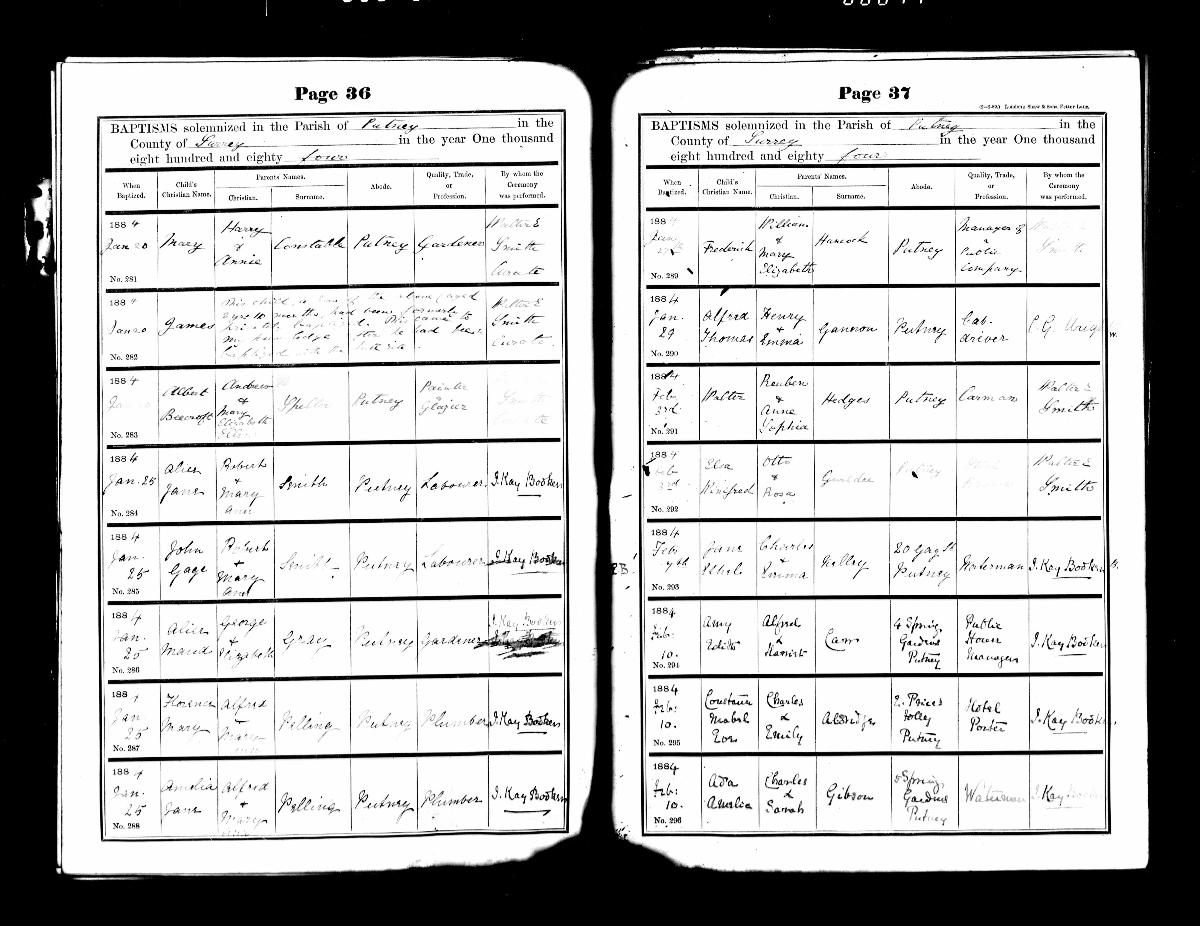 Page 36
BAPTISMS solemnized in the Parish of Putney in the
County of Surrey in the year One thousand
eight hundred and eighty four
When Baptized.
Child's Christian Name.
Parents Names.
Christian.
Surname.
Abode.
Quality, Trade, or Profession.
By whom the Ceremony was performed.
1884
Jan 20
No. 281
Mary
Harry
&
Annie
Constable
Putney
Gardener
Walter E
Smith
Curate
1884
Jan 20
No. 282
James
This child is one of the above
had been formerly
he had been
Walter E
Smith
Curate
1884
No. 283
Albert
Beecroft
Andrew
&
Mary
Elizabeth
Ellen
Putney
Painter
Glazier
Smith
1884
Jan. 25
No. 284
Alice
Jane
Robert
+
Mary
Ann
Smith
Putney
Labourer
J. Kay Booker
1884
Jan.
25
No. 285
John
Gage
Robert
+
Mary
Ann
Smith
Putney
Labourer
J. Kay Booker
1884
Jan.
25
No. 286
Alice
Maud
George
+
Elizabeth
Gray
Putney
Gardener
J. Kay Booker
1884
Jan
25
No. 287
Florence
Mary
Alfred
Pelling
Putney
Plumber
J. Kay Booker
1884
Jan.
25
No. 288
Amelia
Jane
Alfred
+
Mary
Pelling
Putney
Plumber
J. Kay Booker
Page 37
London: Shaw & Sons, Fetter Lane.
BAPTISMS solemnized in the Parish of Putney in the
County of Surrey in the year One thousand
eight hundred and eighty four
When Baptized.
Child's Christian Name.
Parents' Names.
Christian.
Surname.
Abode.
Quality, Trade, or Profession.
By whom the Ceremony was performed.
1884
No. 289
Frederick
William
&
Mary
Elizabeth
Hancock
Putney
Manager of
a
Public
Company
Smith
1884
Jan.
27
No. 290
Alfred
Thomas
Henry
+
Emma
Gannon
Putney
Cab-
driver
C. G.
1884
Feb
3rd
No. 291
Walter
Reuben
&
Anne
Sophia
Hedges
Putney
Carman
Walter E
Smith
1884
Feb
3rd
No. 292
Elsa
Winifred
Otto
&
Rosa
Putney
Walter E
Smith
1884
Feb
7th
No. 293
Jane
Ethel
Charles
+
Emma
Putney
Waterman
J. Kay Booker
1884
Feb:
10.
No. 294
Amy
Edith
Alfred
&
Harriet
Cam
4 Spring
Gardens
Putney
Public
House
Manager
J. Kay Booker
1884
Feb:
10.
No. 295
Constance
Mabel
Charles
&
Emily
Aldridge
2. Price's
Folley
Putney
Hotel
Porter
J. Kay Booker
1884
Feb:
10.
No. 296
Ada
Amelia
Charles
&
Sarah
Gibson
5 Spring
Gardens
Putney
Waterman
J. Kay